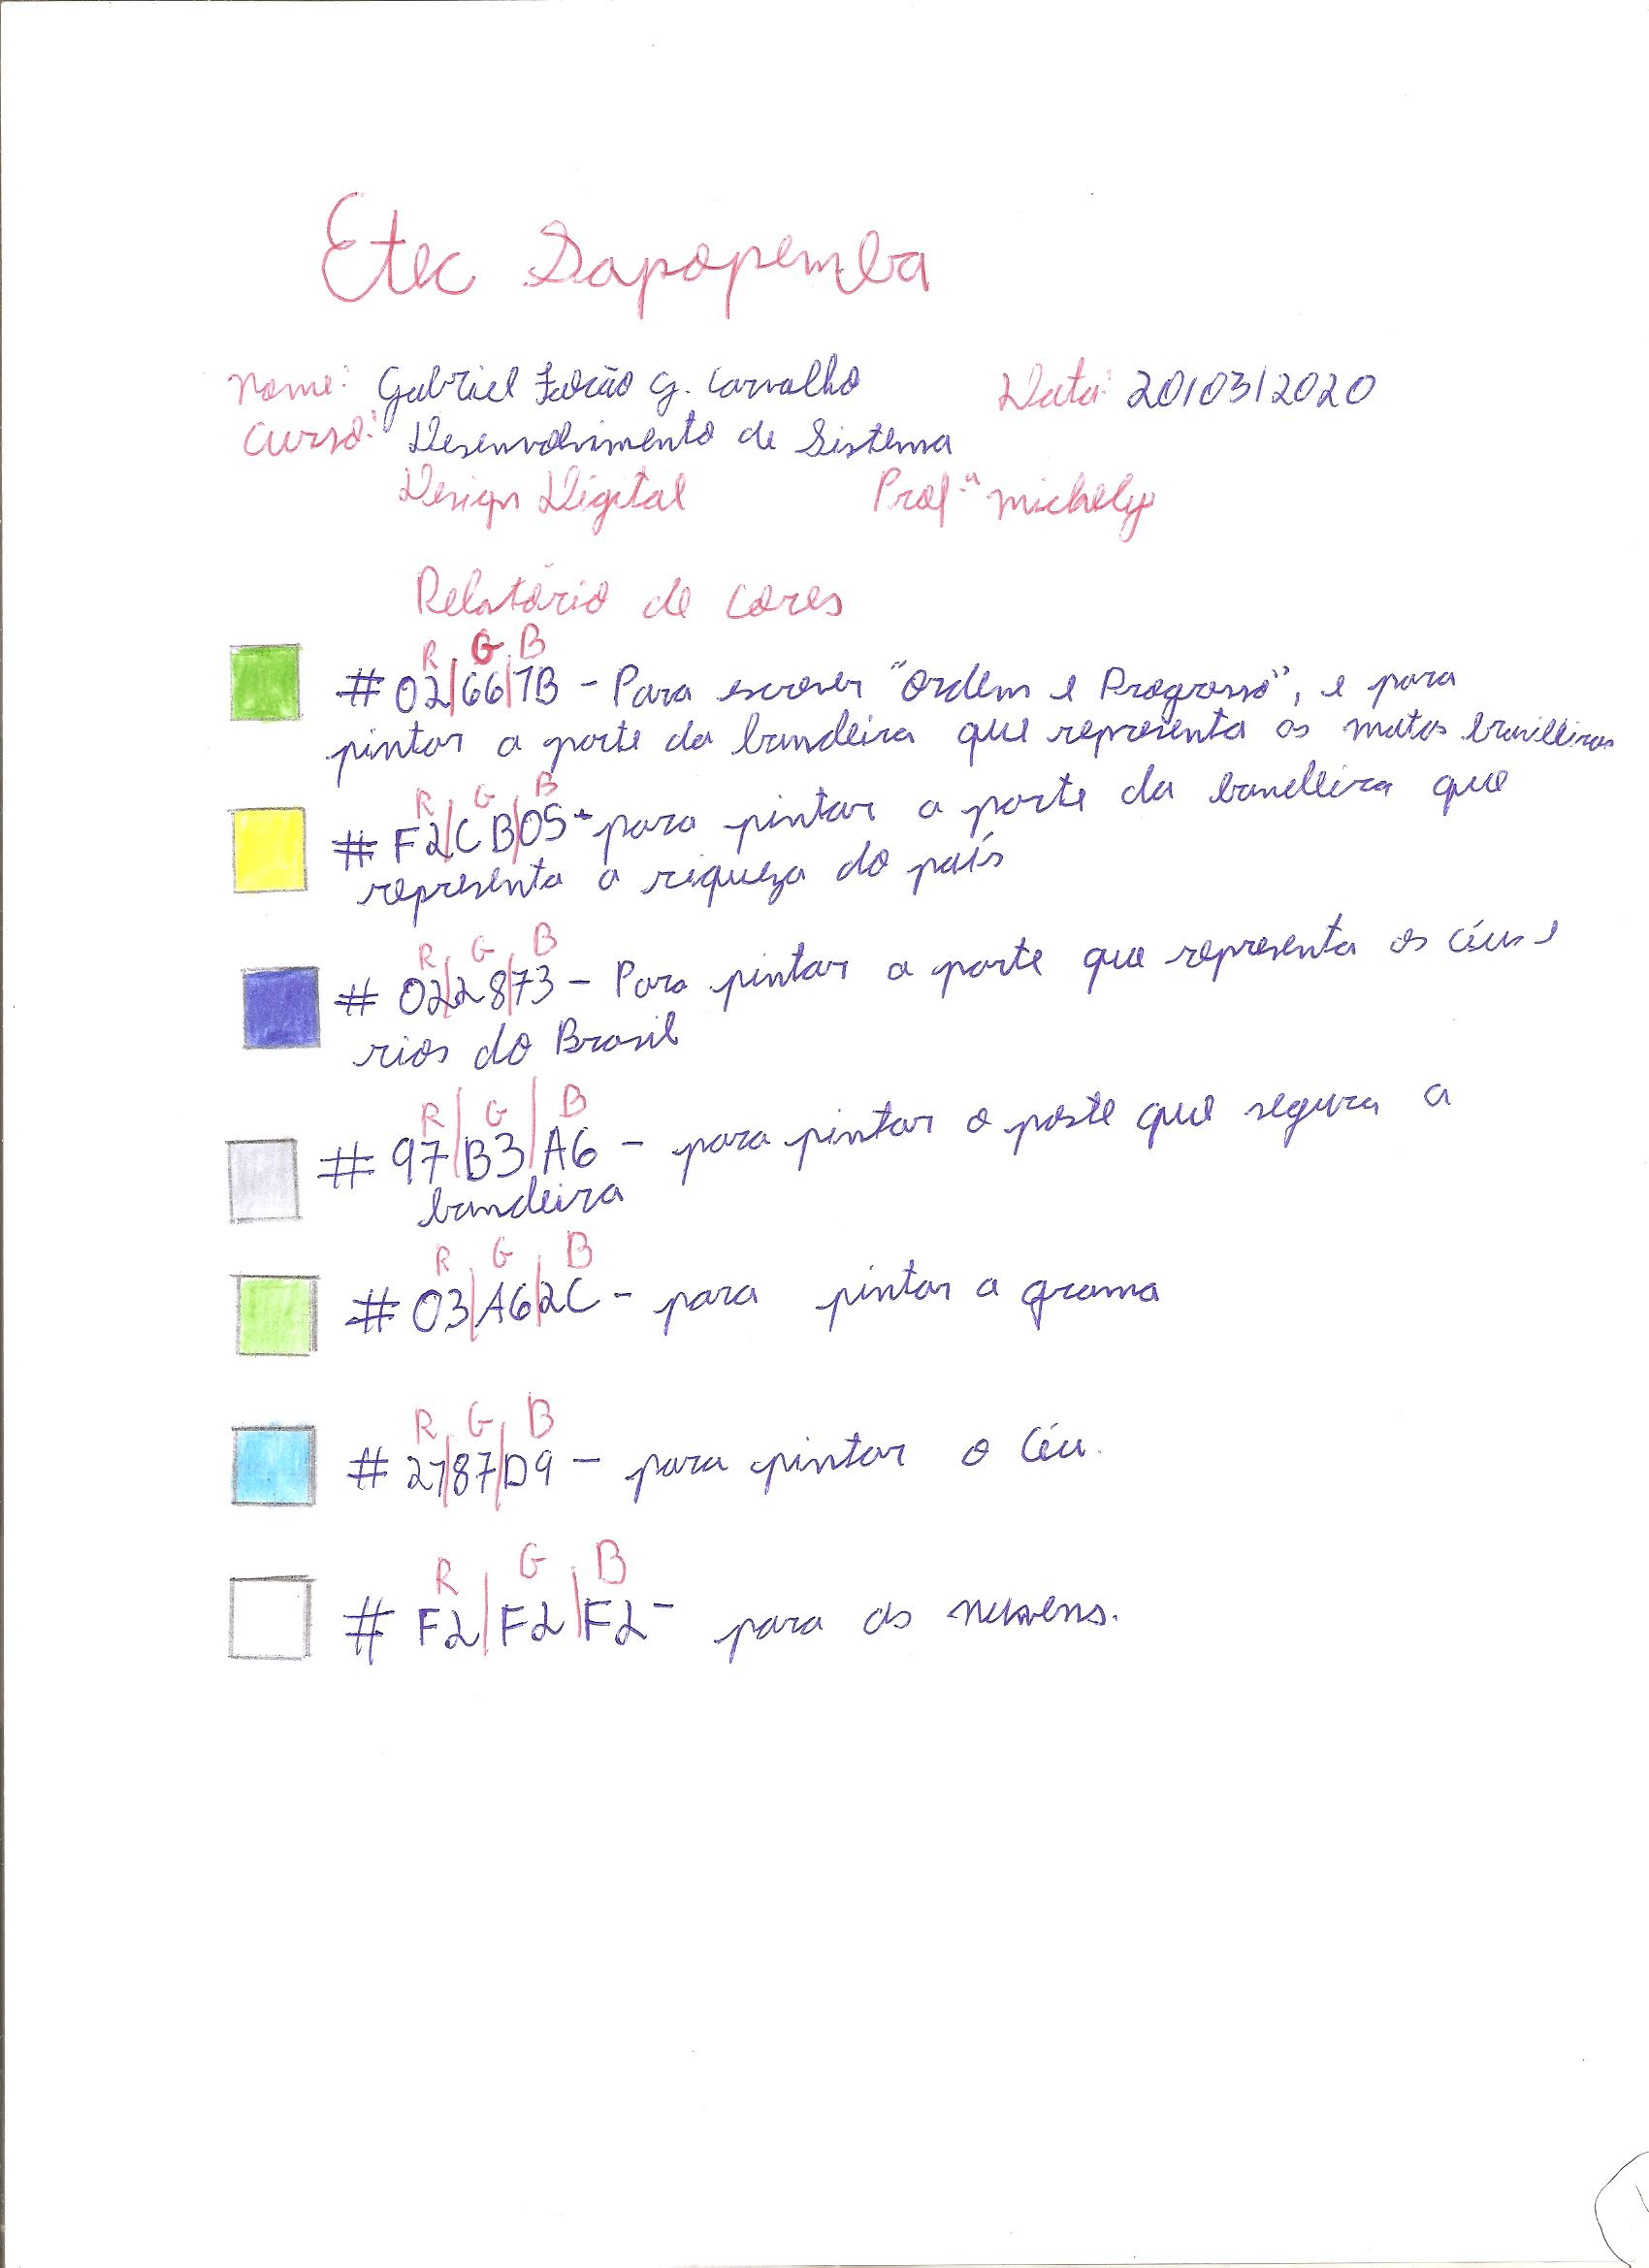 Etec Sapopemba
Nome: Gabriel G. Carvalho Data: 20/03/2020
Curso: Desenvolvimento de Sistema
Design Digital Prof.ª Michely
Relatório de Cores
R G B
# 02|66|1B - Para escrever "Ordem e Progresso", e para
pintar a parte da bandeira que representa as matas brasileiras
R G B
# F2|CB|05 - para pintar a parte da bandeira que
representa a riqueza do país
R G B
# 02|28|73 - Para pintar a parte que representa os céus e
rios do Brasil
R | G | B
# 97|B3|A6 - para pintar o poste que segura a
bandeira
R G B
# 03|A6|2C - para pintar a grama
R G B
# 27|87|D9 - para pintar o Céu.
R G B
# F2|F2|F2 - para as nuvens.